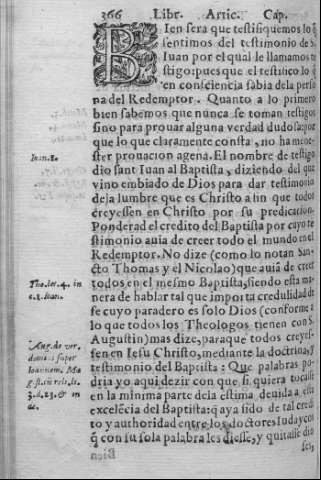 366 Libr. Artic. Cap.
BIen sera que testifiquemos lo q̃
sentimos del testimonio de S.
Iuan por el qual le llamamos te
stigo: pues que el testifico lo q̃
en consciencia sabia de la perso
na del Redemptor. Quanto a lo primero
bien sabemos que nunca se toman testigos
sino para prouar alguna verdad dudosa: por
que lo que claramente consta, no ha mene-
ster prouacion agena. El nombre de testigo
Ioan. 1.
dio sant Iuan al Baptista, diziendo del que
vino embiado de Dios para dar testimonio
de la lumbre que es Christo a fin que todos
creyessen en Christo por su predicacion.
Ponderad el credito del Baptista por cuyo te
stimonio auia de creer todo el mundo en el
Redemptor. No dize (como lo notan San-
cto Thomas y el Nicolao) que auia de creer
Tho. lec. 4. in
c. 1. Ioan.
todos en el mesmo Baptista, siendo esta ma
nera de hablar tal que importa credulidad de
fe cuyo paradero es solo Dios (conforme a
lo que todos los Theologos tienen con S.
Aug. de ver.
domini super
Ioannem. Ma
Augustin) mas dize, para que todos creyes-
sen en Iesu Christo, mediante la doctrina, y
testimonio del Baptista: Que palabras po-
dria yo aqui dezir con que si quiera tocasse
3. d. 23. & in
en la minima parte de la estima deuida a esta
excelẽcia del Baptista: q̃ aya sido de tal credi
to y authoridad entre los doctores Iudaycos
q̃ con su sola palabra les diesse, y quitasse dio
ses,